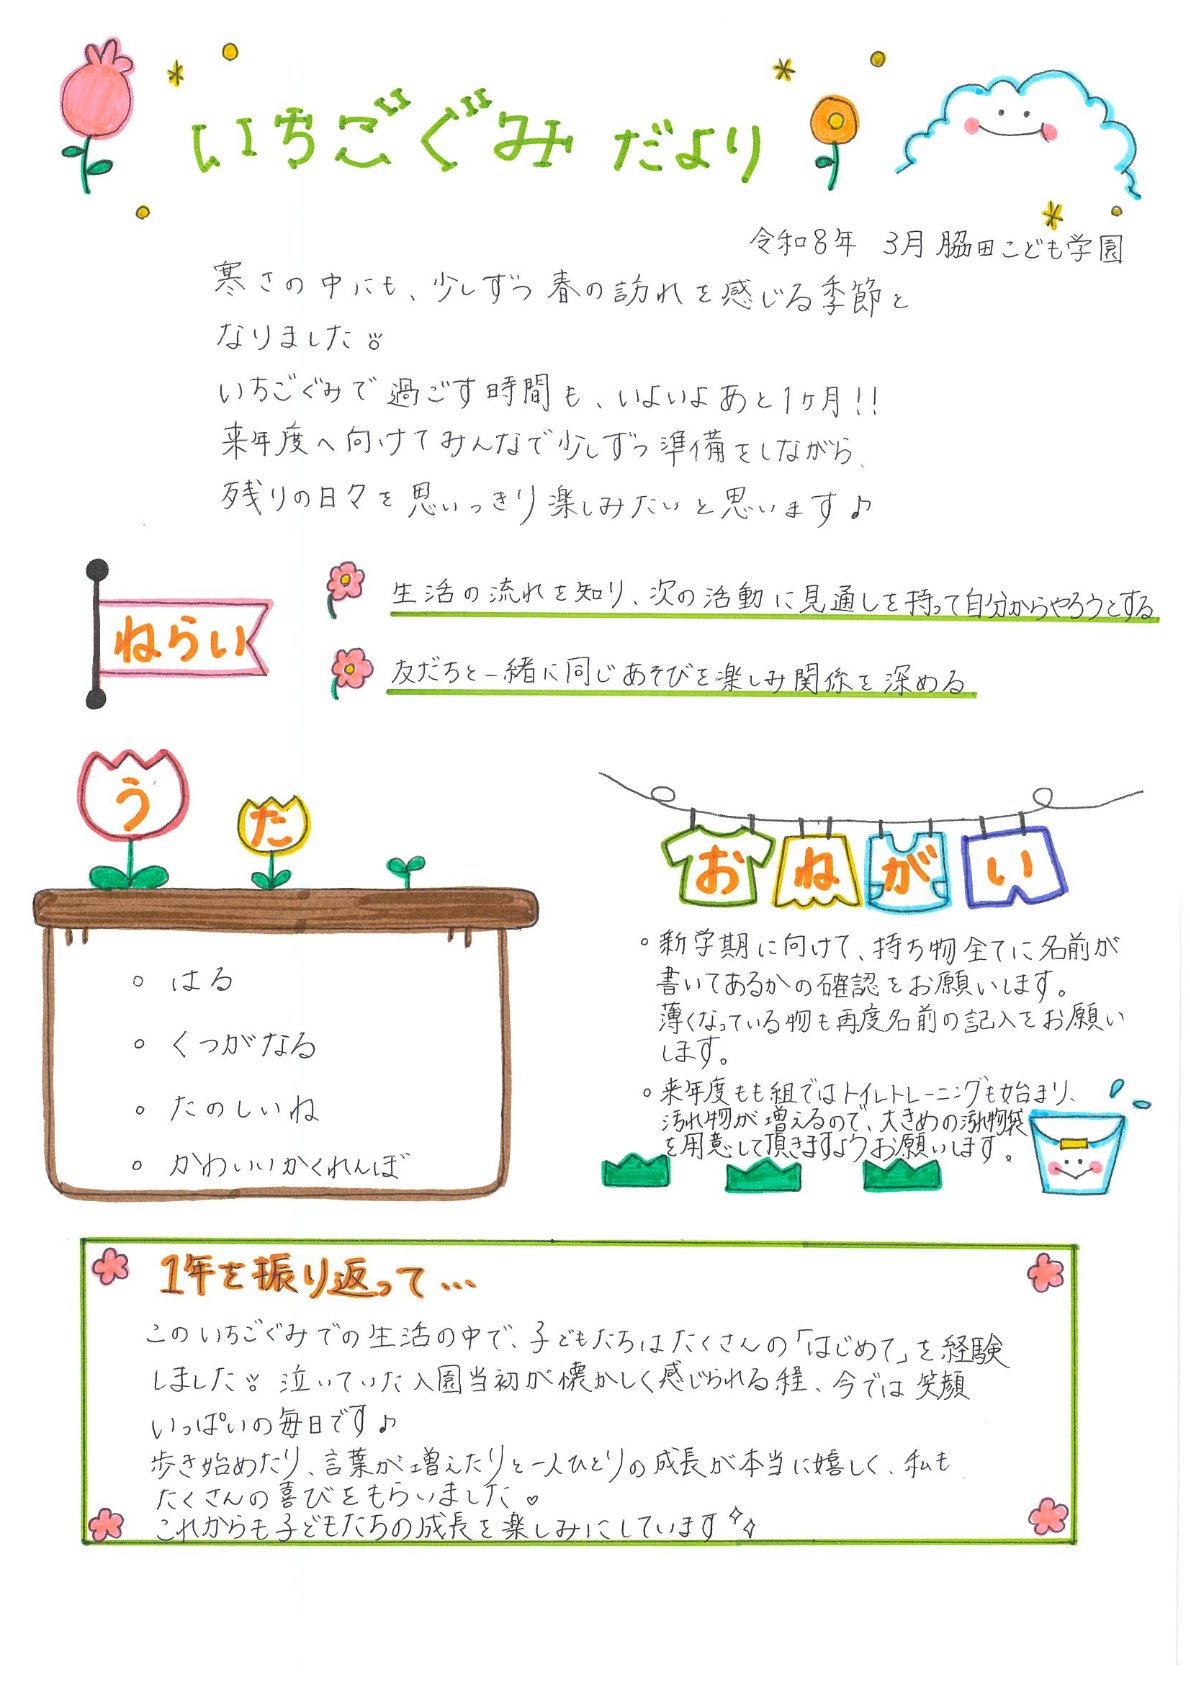 いちごぐみだより
令和8年 3月 脇田こども学園
寒さの中にも、少しずつ春の訪れを感じる季節と
なりました。
いちごぐみで過ごす時間も、いよいよあと1ヶ月!!
来年度へ向けてみんなで少しずつ準備をしながら、
残りの日々を思いっきり楽しみたいと思います♪
ねらい
生活の流れを知り、次の活動に見通しを持って自分からやろうとする
友だちと一緒に同じあそびを楽しみ関係を深める
うた
。はる
。くつがなる
。たのしいね
。かわいいかくれんぼ
おねがい
。新学期に向けて、持ち物全てに名前が
書いてあるかの確認をお願いします。
薄くなっている物も再度名前の記入をお願い
します。
。来年度もも組ではトイレトレーニングも始まり、
汚れ物が増えるので、大きめの汚れ物袋
を用意して頂きますようお願いします。
1年を振り返って…
このいちごぐみでの生活の中で、子どもたちはたくさんの「はじめて」を経験
しました。泣いていた入園当初が懐かしく感じられる程、今では笑顔
いっぱいの毎日です♪
歩き始めたり、言葉が増えたりと一人ひとりの成長が本当に嬉しく、私も
たくさんの喜びをもらいました♡
これからも子どもたちの成長を楽しみにしています✧